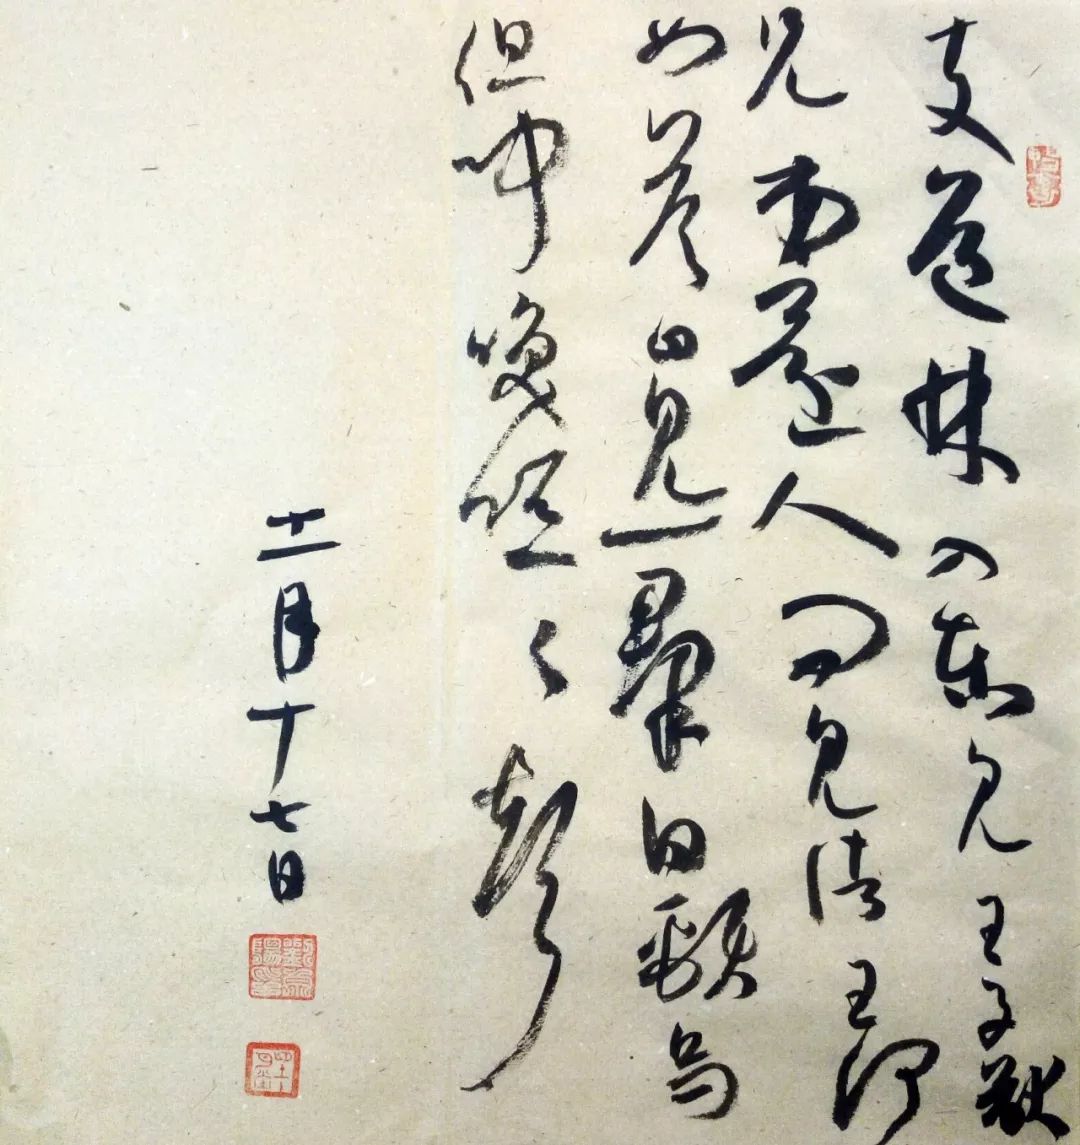 支道林入東見王子猷
兄弟還人問見諸王何
如答曰見一羣白頸烏
但聞喚啞々聲
十一月十七日